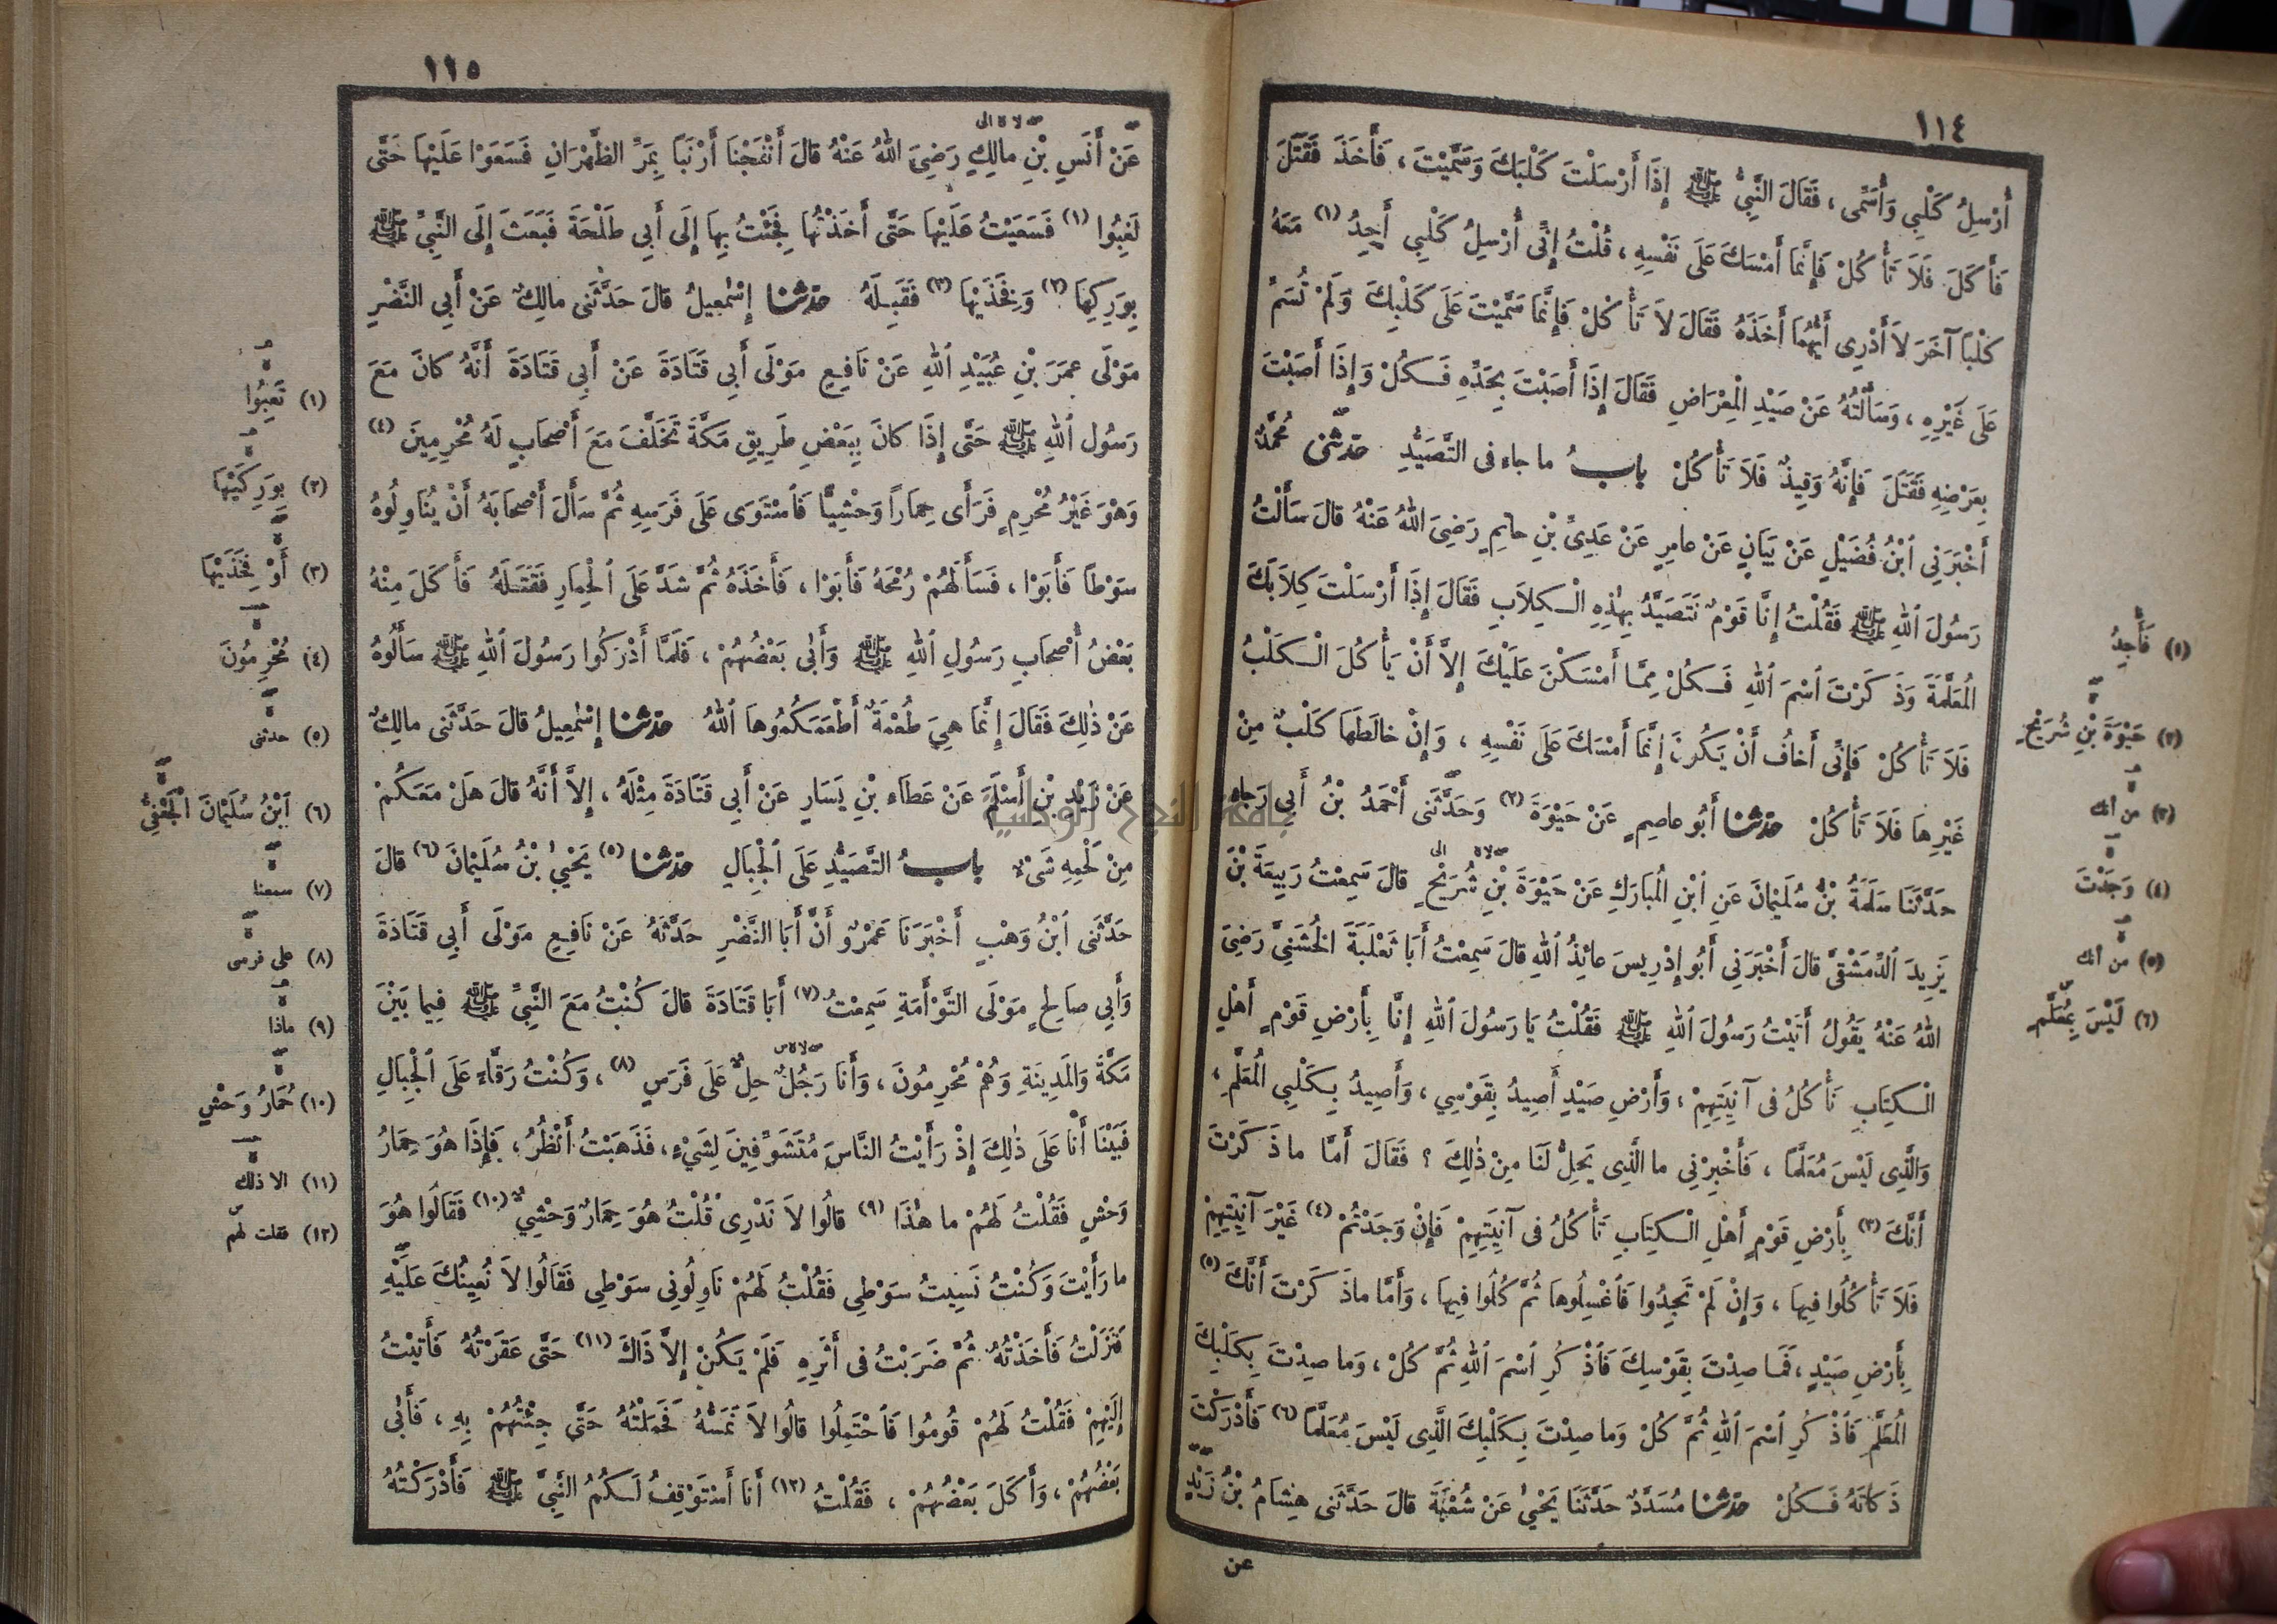 ١١٤
أُرْسِلُ كَلْبِي وَأُسَمِّى ، فَقَالَ النَّبِيُّ ﷺ إِذَا أَرْسَلْتَ كَلْبَكَ وَسَمَّيْتَ ، فَأَخَذَ فَقَتَلَ
فَأَكَلَ فَلَا تَأْكُلْ فَإِنَّمَا أَمْسَكَ عَلَى نَفْسِهِ ، قُلْتُ إِنِّى أُرْسِلُ كَلْبِي أَجِدُ (١) مَعَهُ
كَلْبًا آخَرَ لَا أَدْرِى أَيُّهُمَا أَخَذَهُ فَقَالَ لَا تَأْكُلْ فَإِنَّمَا سَمَّيْتَ عَلَى كَلْبِكَ وَلَمْ تُسَمِّ
عَلَى غَيْرِهِ ، وَسَأَلْتُهُ عَنْ صَيْدِ الْمِعْرَاضِ فَقَالَ إِذَا أَصَبْتَ بِحَدِّهِ فَكُلْ وَإِذَا أَصَبْتَ
بِعَرْضِهِ فَقَتَلَ فَإِنَّهُ وَقِيذٌ فَلَا تَأْكُلْ بابُ ما جاء فى التَّصَيُّدِ حدثنى مُحَمَّدٌ
أَخْبَرَنِي ابْنُ فُضَيْلٍ عَنْ بَيَانٍ عَنْ عامِرٍ عَنْ عَدِىِّ بْنِ حاتِمٍ رَضِىَ اللهُ عَنْهُ قالَ سَأَلْتُ
رَسُولَ اللهِ ﷺ فَقُلْتُ إِنَّا قَوْمٌ نَتَصَيَّدُ بِهٰذِهِ الْكِلَابِ فَقَالَ إِذَا أَرْسَلْتَ كِلَابَكَ
الْمُعَلَّمَةَ وَذَكَرْتَ اسْمَ اللهِ فَكُلْ مِمَّا أَمْسَكْنَ عَلَيْكَ إِلاَّ أَنْ يَأْكُلَ الْكَلْبُ
فَلَا تَأْكُلْ فَإِنِّى أَخافُ أَنْ يَكُونَ إِنَّمَا أَمْسَكَ عَلَى نَفْسِهِ ، وَإِنْ خالَطَهَا كَلْبٌ مِنْ
غَيْرِهَا فَلَا تَأْكُلْ حدثنا أَبُو عاصِمٍ عَنْ حَيْوَةَ (٢) وَحَدَّثَنِى أَحْمَدُ بْنُ أَبِي رَجاءٍ
حَدَّثَنَا سَلَمَةُ بْنُ سُلَيْمَانَ عَنِ ابْنِ الْمُبَارَكِ عَنْ حَيْوَةَ بْنِ شُرَيْحٍ قالَ سَمِعْتُ رَبِيعَةَ بْنَ
يَزِيدَ الدِّمَشْقِىَّ قالَ أَخْبَرَنِي أَبُو إِدْرِيسَ عائِذُ اللهِ قالَ سَمِعْتُ أَبَا ثَعْلَبَةَ الخُشَنِىَّ رَضِىَ
اللهُ عَنْهُ يَقُولُ أَتَيْتُ رَسُولَ اللهِ ﷺ فَقُلْتُ يَا رَسُولَ اللهِ إِنَّا بِأَرْضِ قَوْمٍ أَهْلِ
الْكِتَابِ نَأْكُلُ فى آنِيَتِهِمْ ، وَأَرْضِ صَيْدٍ أَصِيدُ بِقَوْسِي ، وَأَصِيدُ بِكَلْبِي الْمُعَلَّمِ ،
وَالَّذِى لَيْسَ مُعَلَّمًا ، فَأَخْبِرْنِى ما الَّذِى يَحِلُّ لَنَا مِنْ ذٰلِكَ ؟ فَقَالَ أَمَّا ما ذَكَرْتَ
أَنَّكَ (٣) بِأَرْضِ قَوْمٍ أَهْلِ الْكِتَابِ تَأْكُلُ فى آنِيَتِهِمْ فَإِنْ وَجَدْتُمْ (٤) غَيْرَ آنِيَتِهِمْ
فَلَا تَأْكُلُوا فِيهَا ، وَإِنْ لَمْ تَجِدُوا فَاغْسِلُوها ثُمَّ كُلُوا فِيهَا ، وَأَمَّا ما ذَكَرْتَ أَنَّكَ (٥)
بِأَرْضِ صَيْدٍ ، فَمَا صِدْتَ بِقَوْسِكَ فَاذْكُرِ اسْمَ اللهِ ثُمَّ كُلْ ، وَما صِدْتَ بِكَلْبِكَ
الْمُعَلَّمِ فَاذْكُرِ اسْمَ اللهِ ثُمَّ كُلْ وَما صِدْتَ بِكَلْبِكَ الَّذِى لَيْسَ مُعَلَّمًا (٦) فَأَدْرَكْتَ
ذَكاتَهُ فَكُلْ حدثنا مُسَدَّدٌ حَدَّثَنَا يَحْيىٰ عَنْ شُعْبَةَ قالَ حَدَّثَنِى هِشَامُ بْنُ زَيْدٍ
عن
(١) فَأَجِدُ
(٢) حَيْوَةَ بْنِ شُرَيْحٍ
(٣) من أنك
(٤) وَجَدْتَ
(٥) من أنك
(٦) لَيْسَ بِمُعَلَّمٍ
١١٥
عَنْ أَنَسِ بْنِ مالِكٍ رَضِىَ اللهُ عَنْهُ قالَ أَنْفَجْنَا أَرْنَبًا بِمَرِّ الظَّهْرَانِ فَسَعَوْا عَلَيْهَا حَتَّى
لَغِبُوا (١) فَسَعَيْتُ عَلَيْهَا حَتَّى أَخَذْتُهَا فَجِئْتُ بِهَا إِلَى أَبِي طَلْحَةَ فَبَعَثَ إِلَى النَّبِيِّ ﷺ
بِوَرِكِهَا (٢) وَفَخِذَيْهَا (٣) فَقَبِلَهُ حدثنا إِسْمٰعِيلُ قالَ حَدَّثَنِى مالِكٌ عَنْ أَبِي النَّضْرِ
مَوْلَى عُمَرَ بْنِ عُبَيْدِ اللهِ عَنْ نَافِعٍ مَوْلَى أَبِي قَتَادَةَ عَنْ أَبِي قَتَادَةَ أَنَّهُ كانَ مَعَ
رَسُولِ اللهِ ﷺ حَتَّى إِذَا كانَ بِبَعْضِ طَرِيقِ مَكَّةَ تَخَلَّفَ مَعَ أَصْحَابٍ لَهُ مُحْرِمِينَ (٤)
وَهْوَ غَيْرُ مُحْرِمٍ فَرَأَى حِمَارًا وَحْشِيًّا فَاسْتَوَى عَلَى فَرَسِهِ ثُمَّ سَأَلَ أَصْحَابَهُ أَنْ يُنَاوِلُوهُ
سَوْطًا فَأَبَوْا ، فَسَأَلَهُمْ رُمْحَهُ فَأَبَوْا ، فَأَخَذَهُ ثُمَّ شَدَّ عَلَى الْحِمَارِ فَقَتَلَهُ فَأَكَلَ مِنْهُ
بَعْضُ أَصْحَابِ رَسُولِ اللهِ ﷺ وَأَبٰى بَعْضُهُمْ ، فَلَمَّا أَدْرَكُوا رَسُولَ اللهِ ﷺ سَأَلُوهُ
عَنْ ذٰلِكَ فَقَالَ إِنَّمَا هِيَ طُعْمَةٌ أَطْعَمَكُمُوهَا اللهُ حدثنا إِسْمٰعِيلُ قالَ حَدَّثَنِى مالِكٌ
عَنْ زَيْدِ بْنِ أَسْلَمَ عَنْ عَطَاءِ بْنِ يَسَارٍ عَنْ أَبِي قَتَادَةَ مِثْلَهُ ، إِلاَّ أَنَّهُ قالَ هَلْ مَعَكُمْ
مِنْ لَحْمِهِ شَىْءٌ بابُ التَّصَيُّدِ عَلَى الْجِبَالِ حدثنا (٥) يَحْيىٰ بْنُ سُلَيْمَانَ (٦) قالَ
حَدَّثَنِى ابْنُ وَهْبٍ أَخْبَرَنَا عَمْرٌو أَنَّ أَبَا النَّضْرِ حَدَّثَهُ عَنْ نَافِعٍ مَوْلَى أَبِي قَتَادَةَ
وَأَبِي صَالِحٍ مَوْلَى التَّوْأَمَةِ سَمِعْتُ (٧) أَبَا قَتَادَةَ قالَ كُنْتُ مَعَ النَّبِيِّ ﷺ فِيما بَيْنَ
مَكَّةَ وَالمَدِينَةِ وَهُمْ مُحْرِمُونَ ، وَأَنَا رَجُلٌ حِلٌّ عَلَى فَرَسٍ (٨) ، وَكُنْتُ رَقَّاءً عَلَى الْجِبَالِ
فَبَيْنَا أَنَا عَلَى ذٰلِكَ إِذْ رَأَيْتُ النَّاسَ مُتَشَوِّفِينَ لِشَيْءٍ ، فَذَهَبْتُ أَنْظُرُ ، فَإِذَا هُوَ حِمَارُ
وَحْشٍ فَقُلْتُ لَهُمْ ما هٰذَا (٩) قالُوا لاَ نَدْرِى قُلْتُ هُوَ حِمَارٌ وَحْشِيٌّ (١٠) فَقَالُوا هُوَ
ما رَأَيْتَ وَكُنْتُ نَسِيتُ سَوْطِى فَقُلْتُ لَهُمْ نَاوِلُونِى سَوْطِى فَقَالُوا لاَ نُعِينُكَ عَلَيْهِ
فَنَزَلْتُ فَأَخَذْتُهُ ثُمَّ ضَرَبْتُ فى أَثَرِهِ فَلَمْ يَكُنْ إِلاَّ ذَاكَ (١١) حَتَّى عَقَرْتُهُ فَأَتَيْتُ
إِلَيْهِمْ فَقُلْتُ لَهُمْ قُومُوا فَاحْتَمِلُوا قالُوا لاَ نَمَسُّهُ فَحَمَلْتُهُ حَتَّى جِئْتُهُمْ بِهِ ، فَأَبٰى
بَعْضُهُمْ ، وَأَكَلَ بَعْضُهُمْ ، فَقُلْتُ (١٢) أَنَا أَسْتَوْقِفُ لَكُمُ النَّبِيَّ ﷺ فَأَدْرَكْتُهُ
(١) تَعِبُوا
(٢) بِوَرِكَيْهَا
(٣) أَوْ فَخِذَيْهَا
(٤) مُحْرِمُونَ
(٥) حدثنى
(٦) ابْنُ سُلَيْمَانَ الْجُعْفِىُّ
(٧) سمعنا
(٨) على فرسى
(٩) ماذا
(١٠) حِمَارُ وَحْشٍ
(١١) الا ذلك
(١٢) فقلت لهم
جامعة النجاح الوطنية